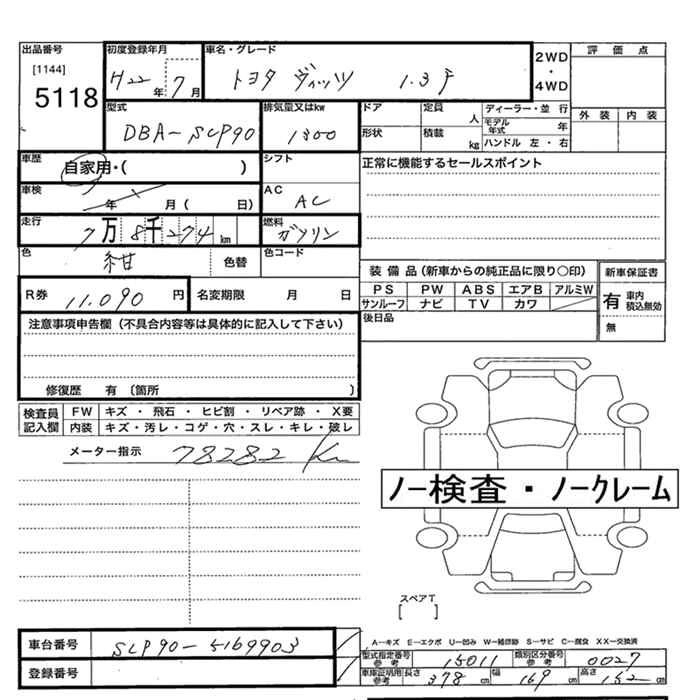 出品番号 初度登録年月 車名・グレード 2WD ・ 4WD 評価点
[1144]
5118 H22年 7月 トヨタ ヴィッツ 1.3F
外装 内装
型式 排気量又はkw ドア 定員 人 ディーラー・並行
DBA-SCP90 1300 形状 積載 kg モデル年式 年
ハンドル 左・右
車歴 自家用・( ) シフト 正常に機能するセールスポイント
車検 年 月( 日) AC AC
走行 7万8千274km 燃料 ガソリン
色 紺 色替 色コード
装備品(新車からの純正品に限り○印) 新車保証書
R券 11.090円 名変期限 月 日
PS PW ABS エアB アルミW
サンルーフ ナビ TV カワ
有 車内積込無効
無
後日品
注意事項申告欄(不具合内容等は具体的に記入して下さい)
修復歴 有〔箇所 〕
検査員記入欄 FW キズ・飛石・ヒビ割・リペア跡・X要
内装 キズ・汚レ・コゲ・穴・スレ・キレ・破レ
メーター指示 78282 Km
ノー検査・ノークレーム
スペアT
[ ]
車台番号 SCP90-5169903
登録番号
A-キズ E-エクボ U-凹み W-補修跡 S-サビ C-腐食 XX-交換済
型式指定番号 参考 15011 類別区分番号 参考 0027
車庫証明用 参考 長さ 378cm 幅 169cm 高さ 152cm